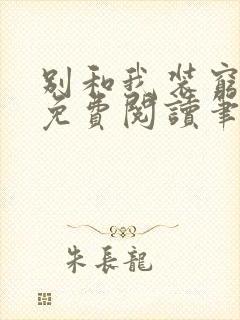 别和我装窮
免費閱讀筆
朱長龍